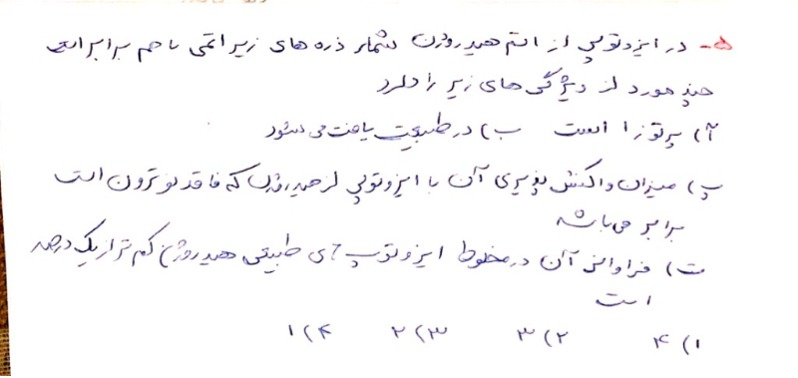 ۵- در ایزوتوپی از اتم هیدروژن شمار ذره های زیر اتمی با هم برابر است
چند مورد از ویژگی های زیر را دارد
آ) پرتوزا است ب) در طبیعت یافت می شود
پ) میزان واکنش پذیری آن با ایزوتوپی از هیدروژن که فاقد نوترون است
برابر می باشد
ت) فراوانی آن در مخلوط ایزوتوپ های طبیعی هیدروژن کم تر از یک درصد
است
۱) ۴ ۲) ۳ ۳) ۲ ۴) ۱